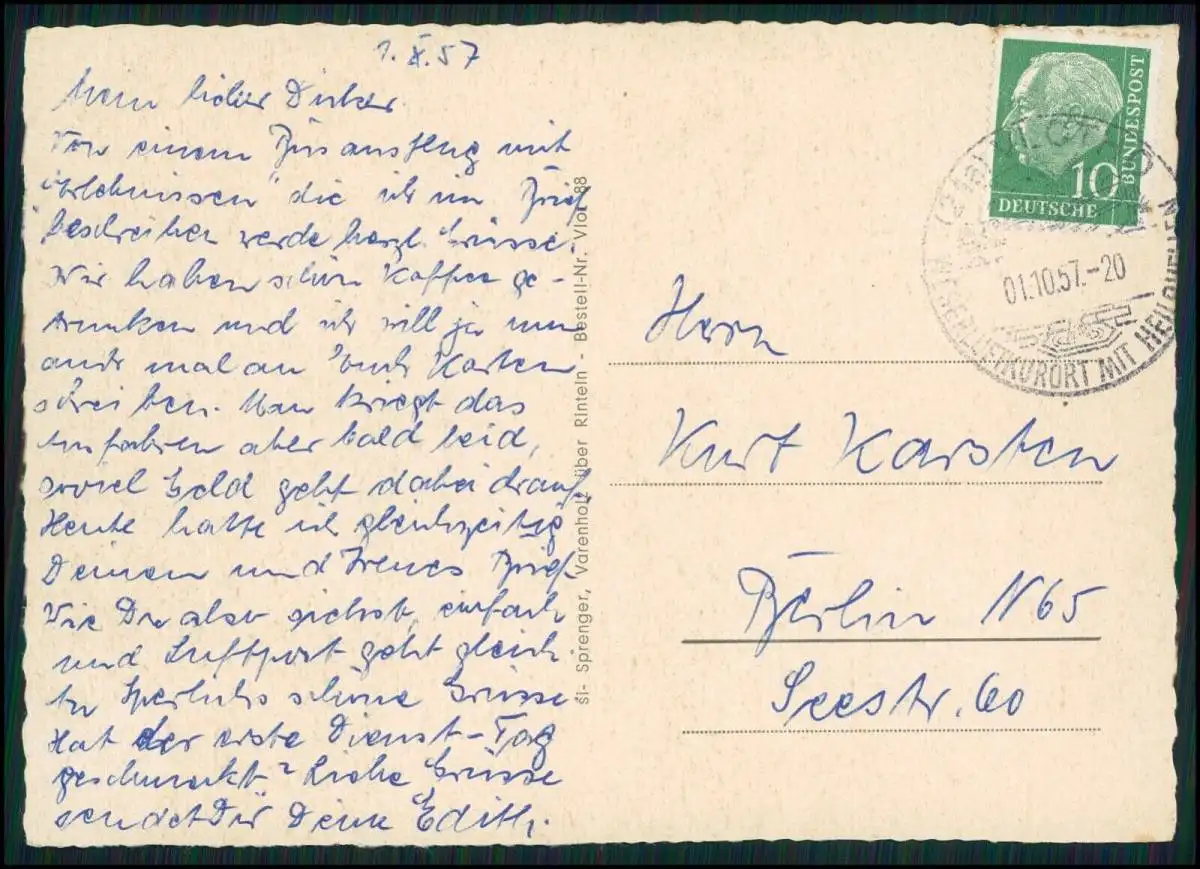 1. X. 57
Mein lieber Dicker.
Von einem Busausflug mit
"Erlebnissen" die ich im Brief
beschreiben werde herzl. Grüsse.
Wir haben schön Kaffee ge-
trunken und ich will ja nun
auch mal an Euch Karten
schreiben. Man kriegt das
aber bald leid,
soviel Geld geht dabei drauf.
Heute hatte ich gleichzeitig
Deinen und Irenes Brief.
Wie Du also siehst, einfach
und Luftpost geht gleich.
schöne Grüsse
Hat der erste Dienst-Tag
geschmeckt? Liebe Grüsse
sendet Dir Deine Edith.
si- Sprenger, Varenholz über Rinteln - Bestell-Nr. Vlot 88
DEUTSCHE BUNDESPOST
10
VLOTHO
01.10.57.-20
WESERLUFTKURORT MIT HEILQUELLEN
Herrn
Kurt Karsten
Berlin N65
Seestr. 60